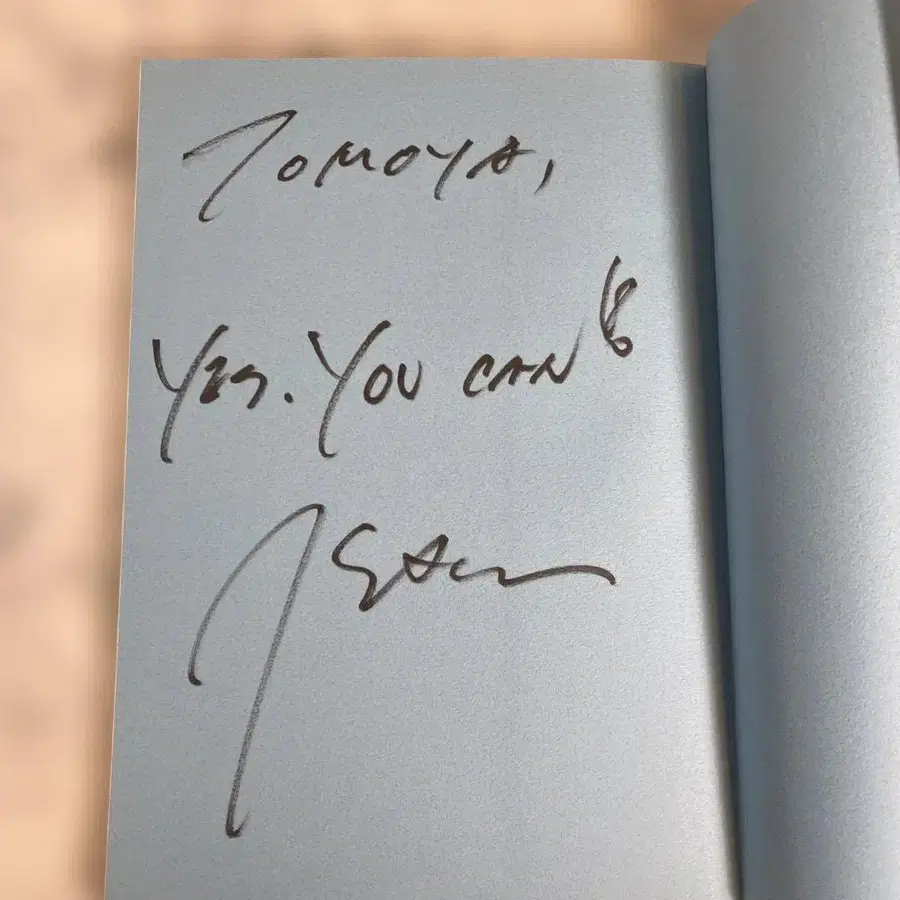 TOMOYA,
YES. YOU CAN